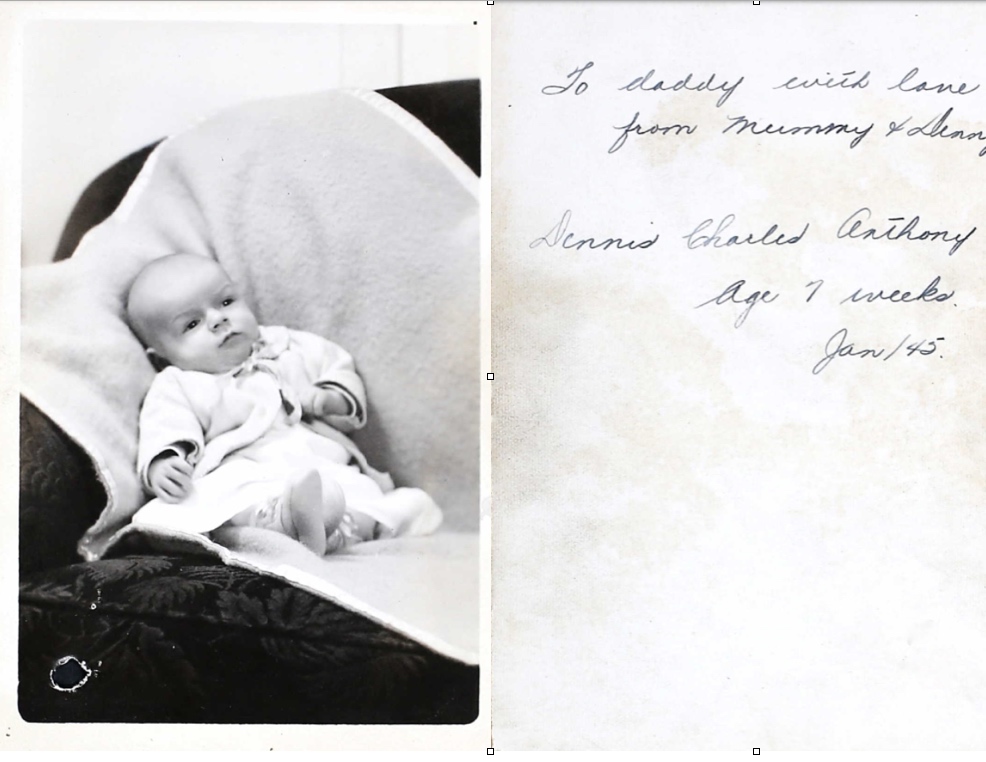 To daddy with love
from Mummy & Denny
Dennis Charles Anthony
Age 7 weeks.
Jan/45.